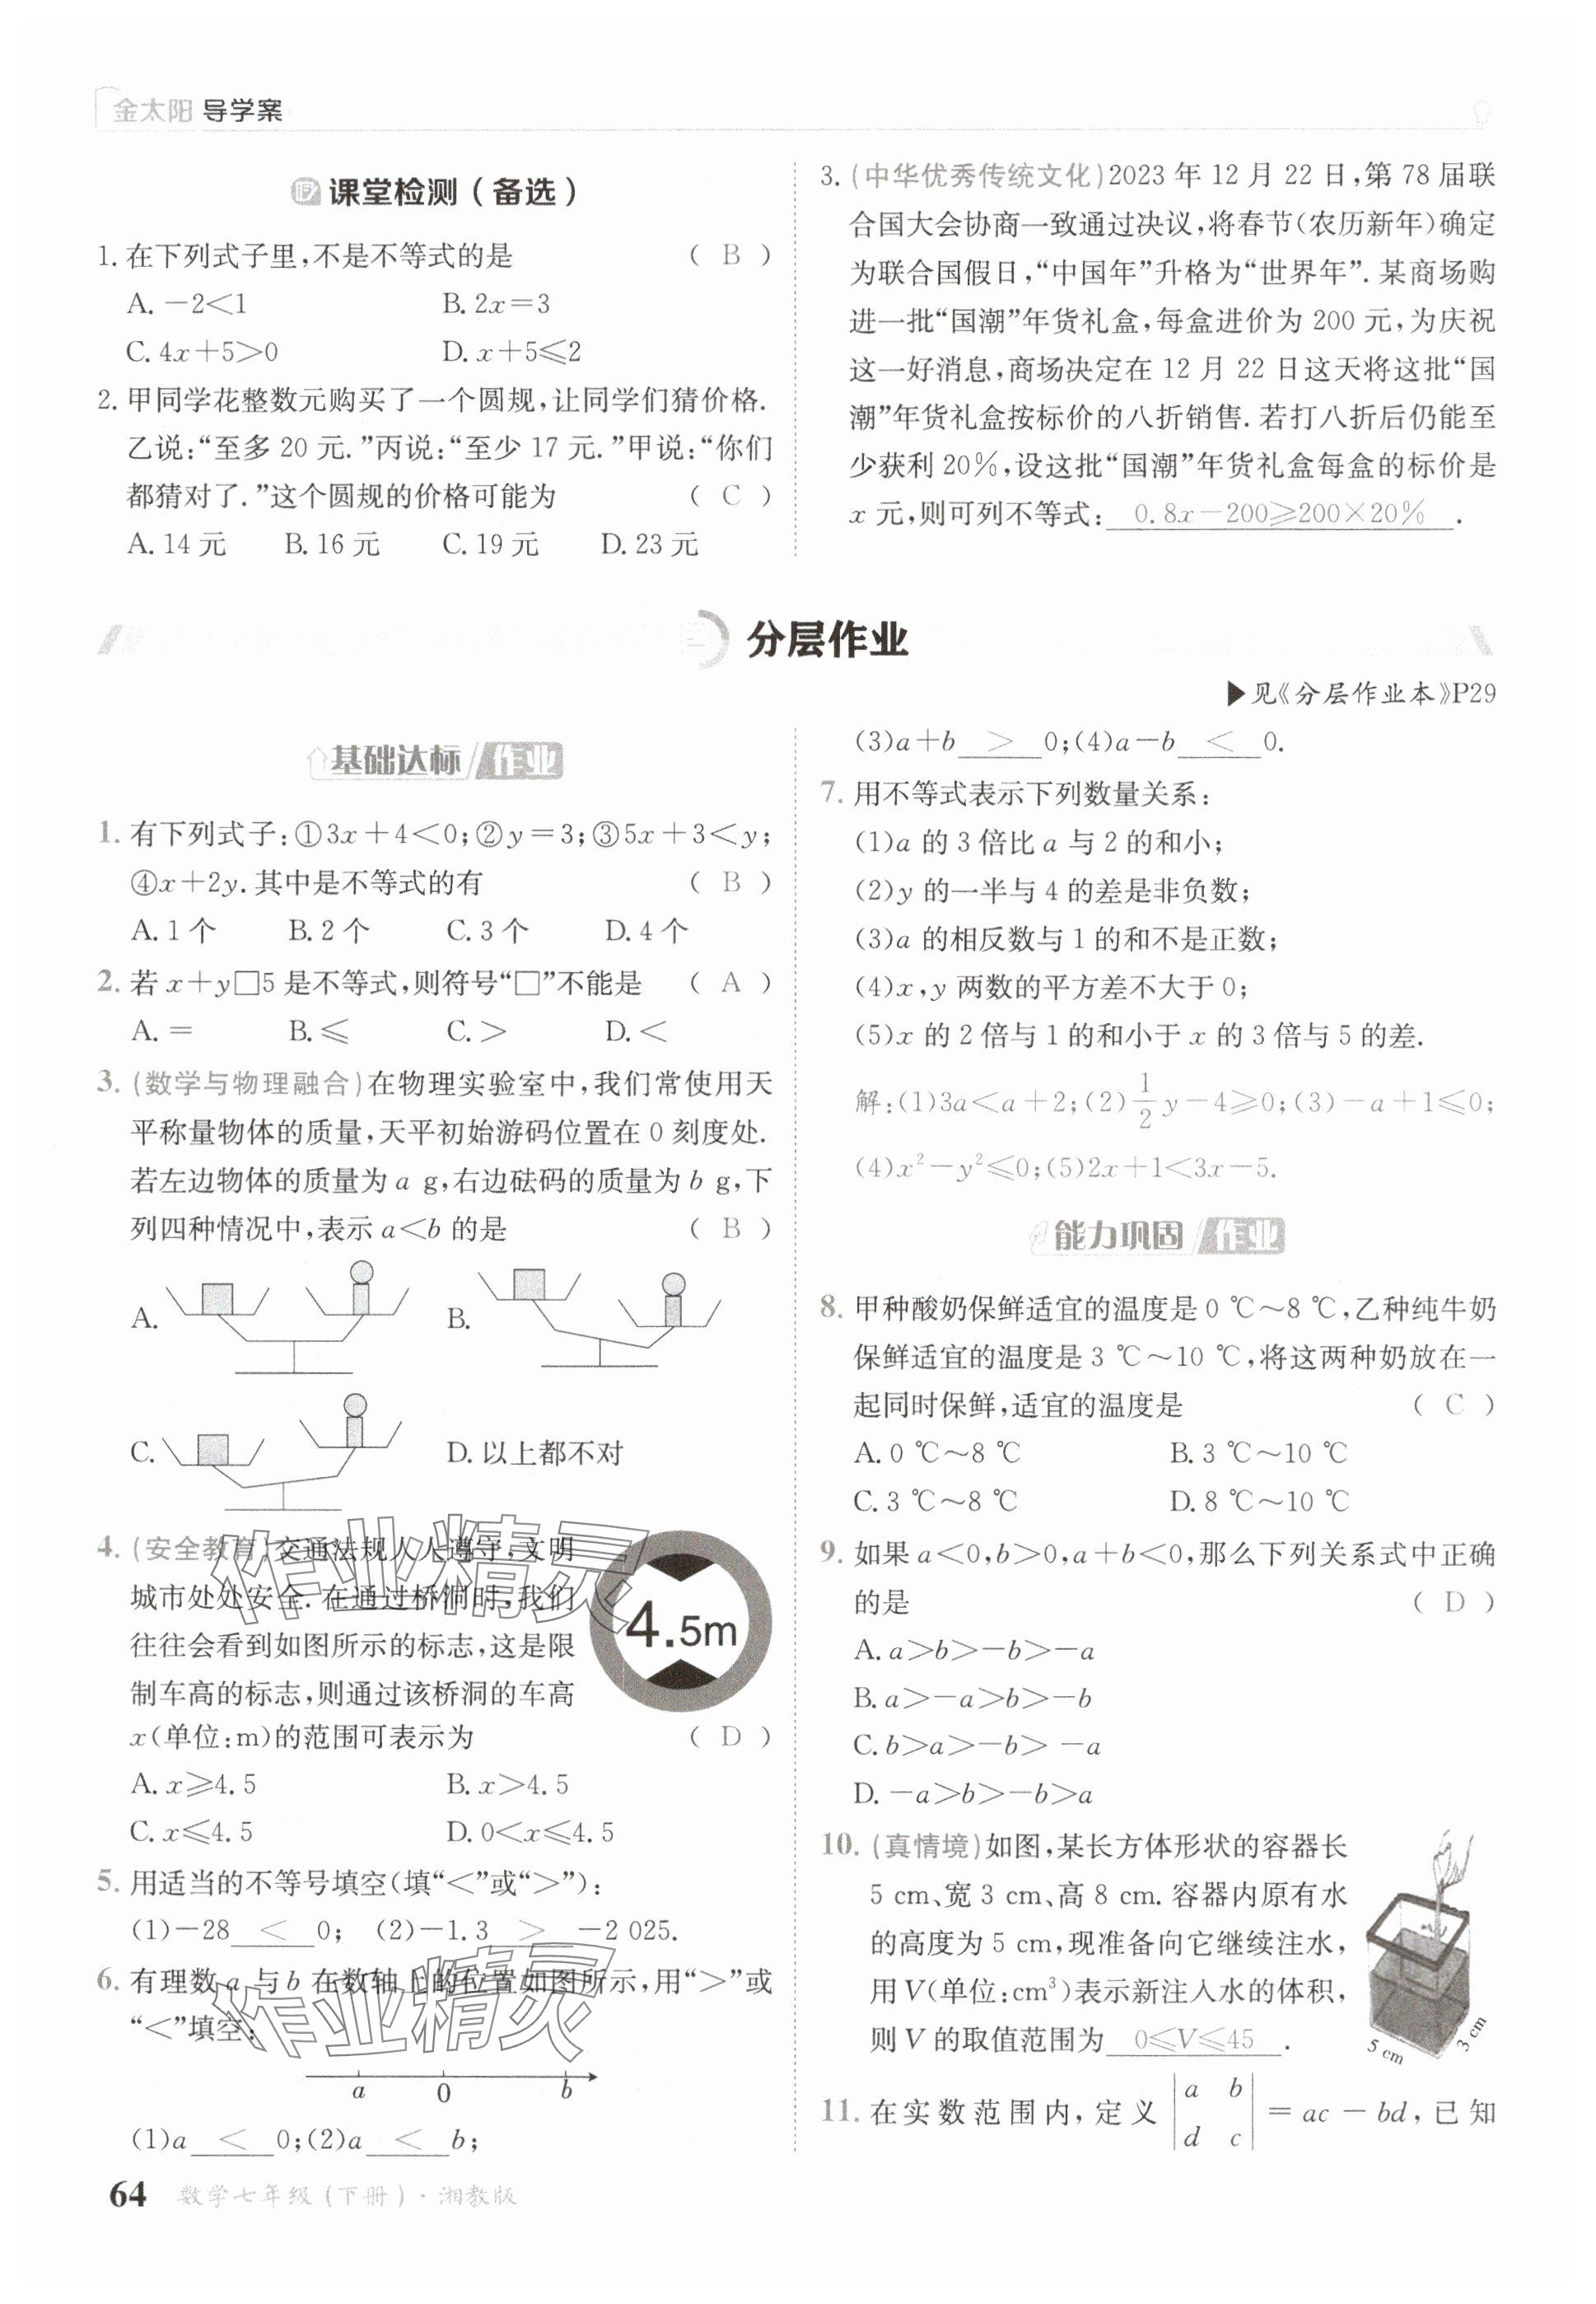 金太阳 导学案
课堂检测（备选）
1. 在下列式子里,不是不等式的是 ( B )
A. －2＜1 B. 2x＝3
C. 4x＋5＞0 D. x＋5≤2
2. 甲同学花整数元购买了一个圆规,让同学们猜价格.
乙说:“至多 20 元.”丙说:“至少 17 元.”甲说:“你们
都猜对了.”这个圆规的价格可能为 ( C )
A. 14 元 B. 16 元 C. 19 元 D. 23 元
3. (中华优秀传统文化)2023 年 12 月 22 日,第 78 届联
合国大会协商一致通过决议,将春节(农历新年)确定
为联合国假日,“中国年”升格为“世界年”. 某商场购
进一批“国潮”年货礼盒,每盒进价为 200 元,为庆祝
这一好消息,商场决定在 12 月 22 日这天将这批“国
潮”年货礼盒按标价的八折销售. 若打八折后仍能至
少获利 20%,设这批“国潮”年货礼盒每盒的标价是
x 元,则可列不等式: 0.8x－200≥200×20% .
分层作业
▶见《分层作业本》P29
基础达标 作业
1. 有下列式子:①3x＋4＜0;②y＝3;③5x＋3＜y;
④x＋2y. 其中是不等式的有 ( B )
A. 1 个 B. 2 个 C. 3 个 D. 4 个
2. 若 x＋y□5 是不等式,则符号“□”不能是 ( A )
A. ＝ B. ≤ C. ＞ D. ＜
3. (数学与物理融合)在物理实验室中,我们常使用天
平称量物体的质量,天平初始游码位置在 0 刻度处.
若左边物体的质量为 a g,右边砝码的质量为 b g,下
列四种情况中,表示 a＜b 的是 ( B )
A. B.
C. D. 以上都不对
4. (安全教育)交通法规人人遵守,文明
城市处处安全. 在通过桥洞时,我们
往往会看到如图所示的标志,这是限
制车高的标志,则通过该桥洞的车高
x(单位:m)的范围可表示为 ( D )
4.5m
A. x≥4.5 B. x＞4.5
C. x≤4.5 D. 0＜x≤4.5
5. 用适当的不等号填空(填“＜”或“＞”):
(1)－28 ＜ 0; (2)－1.3 ＞ －2 025.
6. 有理数 a 与 b 在数轴上的位置如图所示,用“＞”或
“＜”填空:
a 0 b
(1)a ＜ 0;(2)a ＜ b;
(3)a＋b ＞ 0;(4)a－b ＜ 0.
7. 用不等式表示下列数量关系:
(1)a 的 3 倍比 a 与 2 的和小;
(2)y 的一半与 4 的差是非负数;
(3)a 的相反数与 1 的和不是正数;
(4)x,y 两数的平方差不大于 0;
(5)x 的 2 倍与 1 的和小于 x 的 3 倍与 5 的差.
解:(1)3a＜a＋2;(2)1/2 y－4≥0;(3)－a＋1≤0;
(4)x²－y²≤0;(5)2x＋1＜3x－5.
能力巩固 作业
8. 甲种酸奶保鲜适宜的温度是 0 ℃～8 ℃,乙种纯牛奶
保鲜适宜的温度是 3 ℃～10 ℃,将这两种奶放在一
起同时保鲜,适宜的温度是 ( C )
A. 0 ℃～8 ℃ B. 3 ℃～10 ℃
C. 3 ℃～8 ℃ D. 8 ℃～10 ℃
9. 如果 a＜0,b＞0,a＋b＜0,那么下列关系式中正确
的是 ( D )
A. a＞b＞－b＞－a
B. a＞－a＞b＞－b
C. b＞a＞－b＞ －a
D. －a＞b＞－b＞a
10. (真情境)如图,某长方体形状的容器长
5 cm、宽 3 cm、高 8 cm. 容器内原有水
的高度为 5 cm,现准备向它继续注水,
用 V(单位:cm³)表示新注入水的体积,
则 V 的取值范围为 0≤V≤45 .
5 cm 3 cm
11. 在实数范围内,定义 |a b; d c| ＝ ac － bd,已知
作业精灵
作业精灵
64 数学七年级(下册)·湘教版